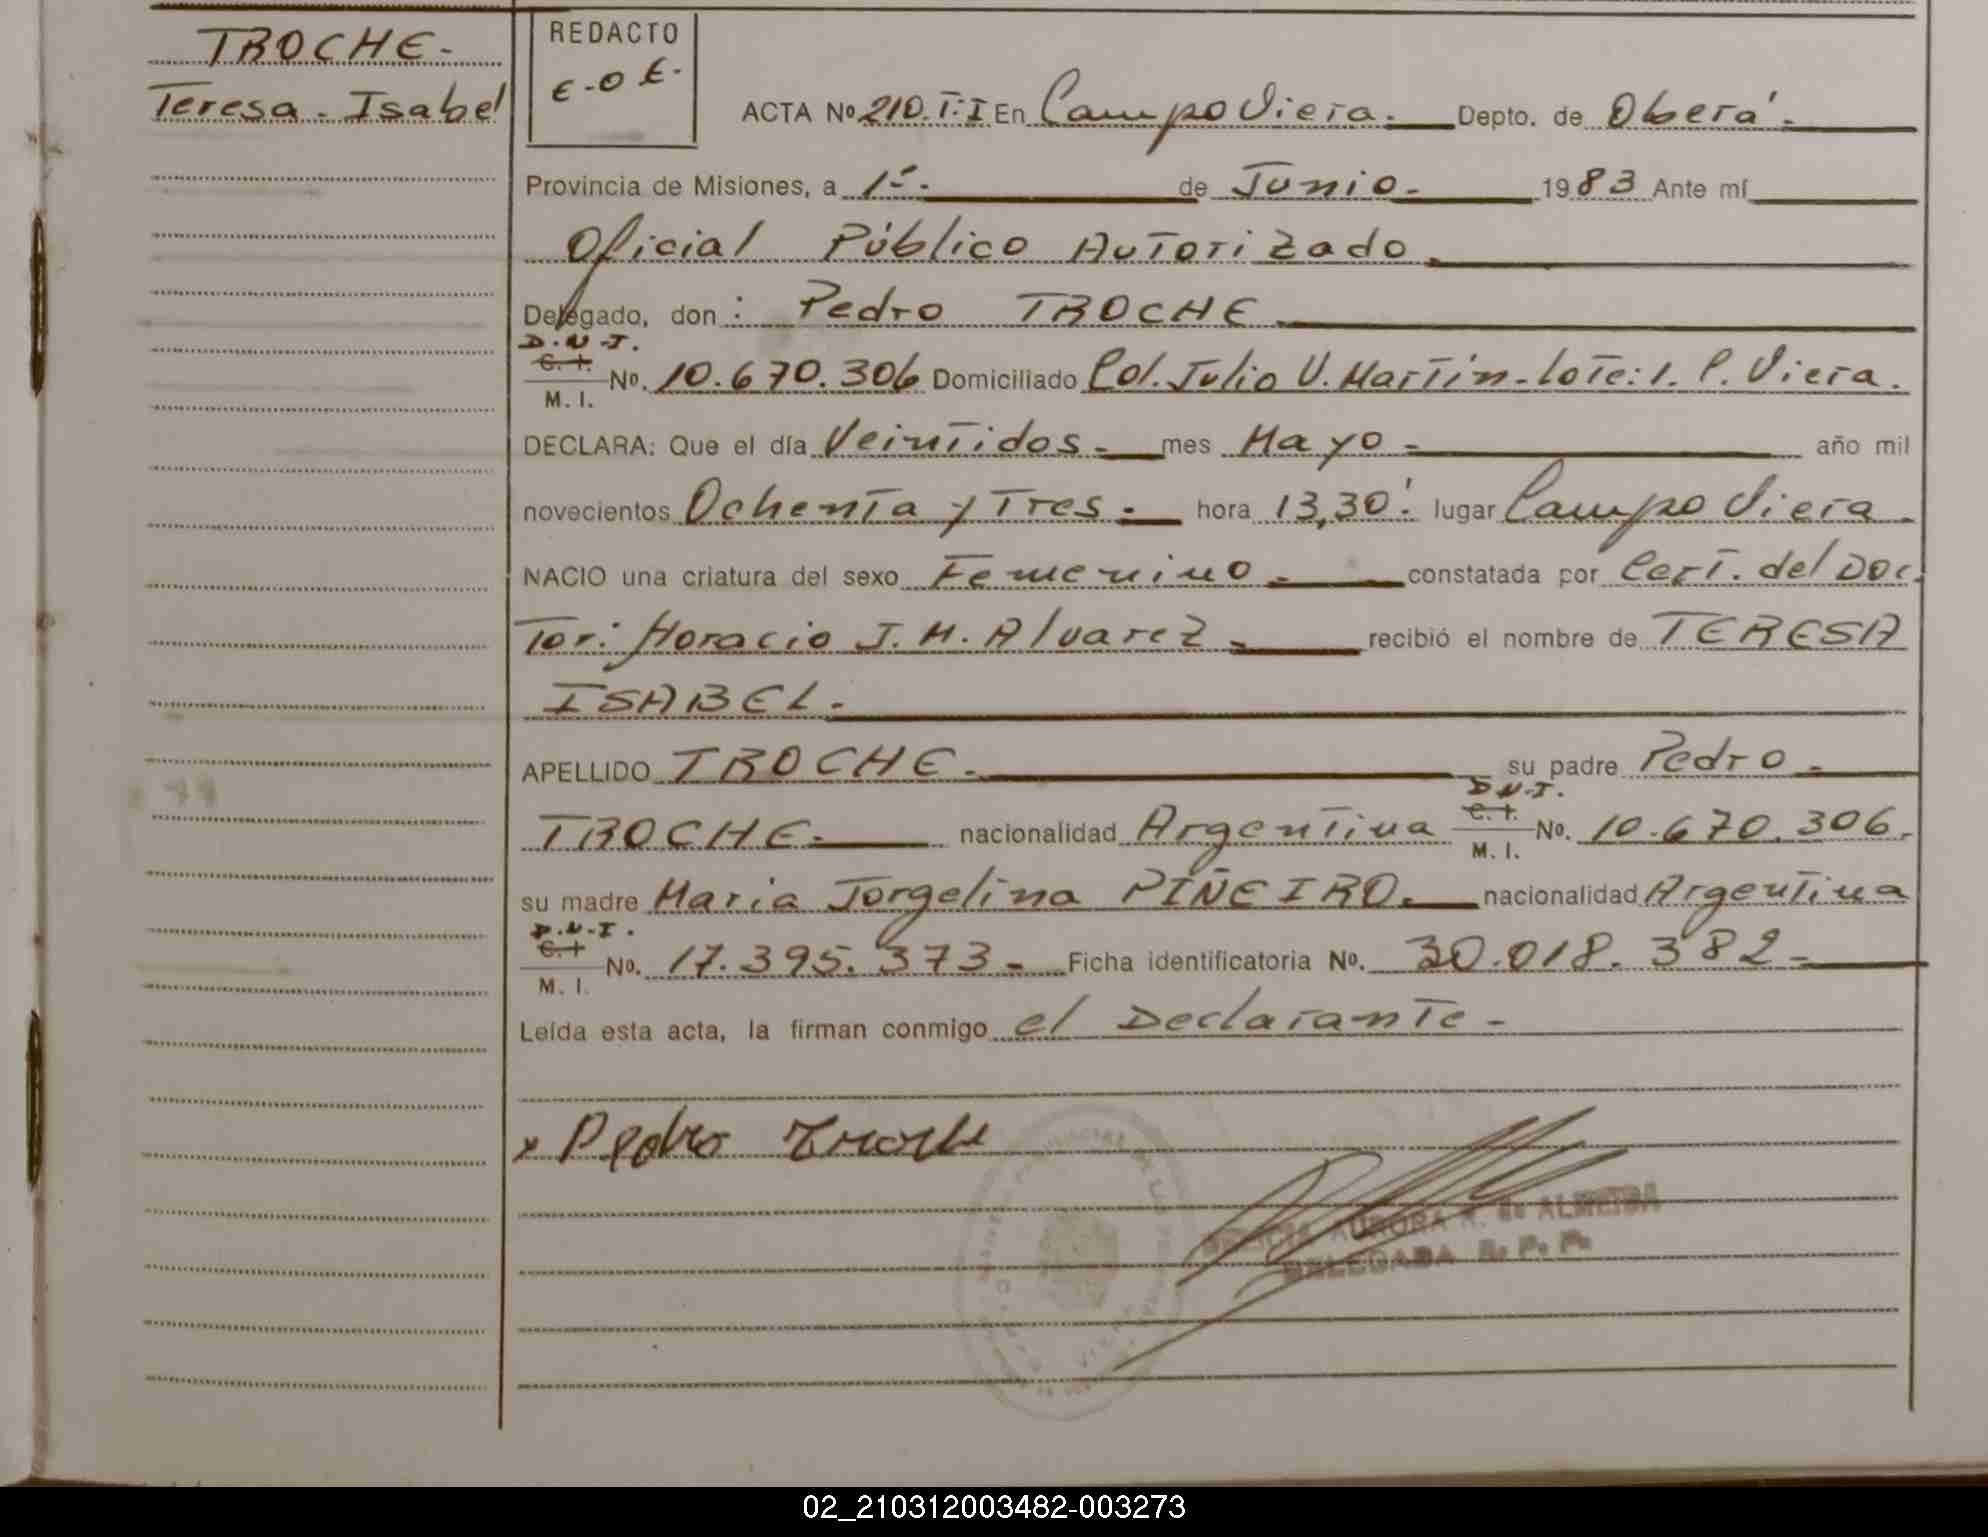 TROCHE-
Teresa. Isabel
REDACTO
E-O E-
ACTA Nº 210. T: I En Campo Viera. Depto. de Oberá.
Provincia de Misiones, a 1º. de Junio. 1983 Ante mí
Oficial Público Autorizado
Delegado, don: Pedro TROCHE
D.N.I.
C. I.
M. I. Nº. 10.670.306 Domiciliado Col. Julio U. Martin-Lote: 1. C. Viera.
DECLARA: Que el día Veintidos. mes Mayo. año mil
novecientos Ochenta y Tres. hora 13,30'. lugar Campo Viera.
NACIO una criatura del sexo Femenino. constatada por Cert. del Doc-
tor: Horacio J. M. Alvarez. recibió el nombre de TERESA
ISABEL.
APELLIDO TROCHE. su padre Pedro.
TROCHE. nacionalidad Argentina D.N.I. C. I. M. I. Nº. 10.670.306.
su madre Maria Jorgelina PIÑEIRO. nacionalidad Argentina
D.N.I.
C. I.
M. I. Nº. 17.395.373- Ficha identificatoria Nº. 30.018.382-
Leída esta acta, la firman conmigo el Declarante-
x Pedro Troche
AURORA R. de ALMEIDA
DELEGADA R. P. P.
02_210312003482-003273